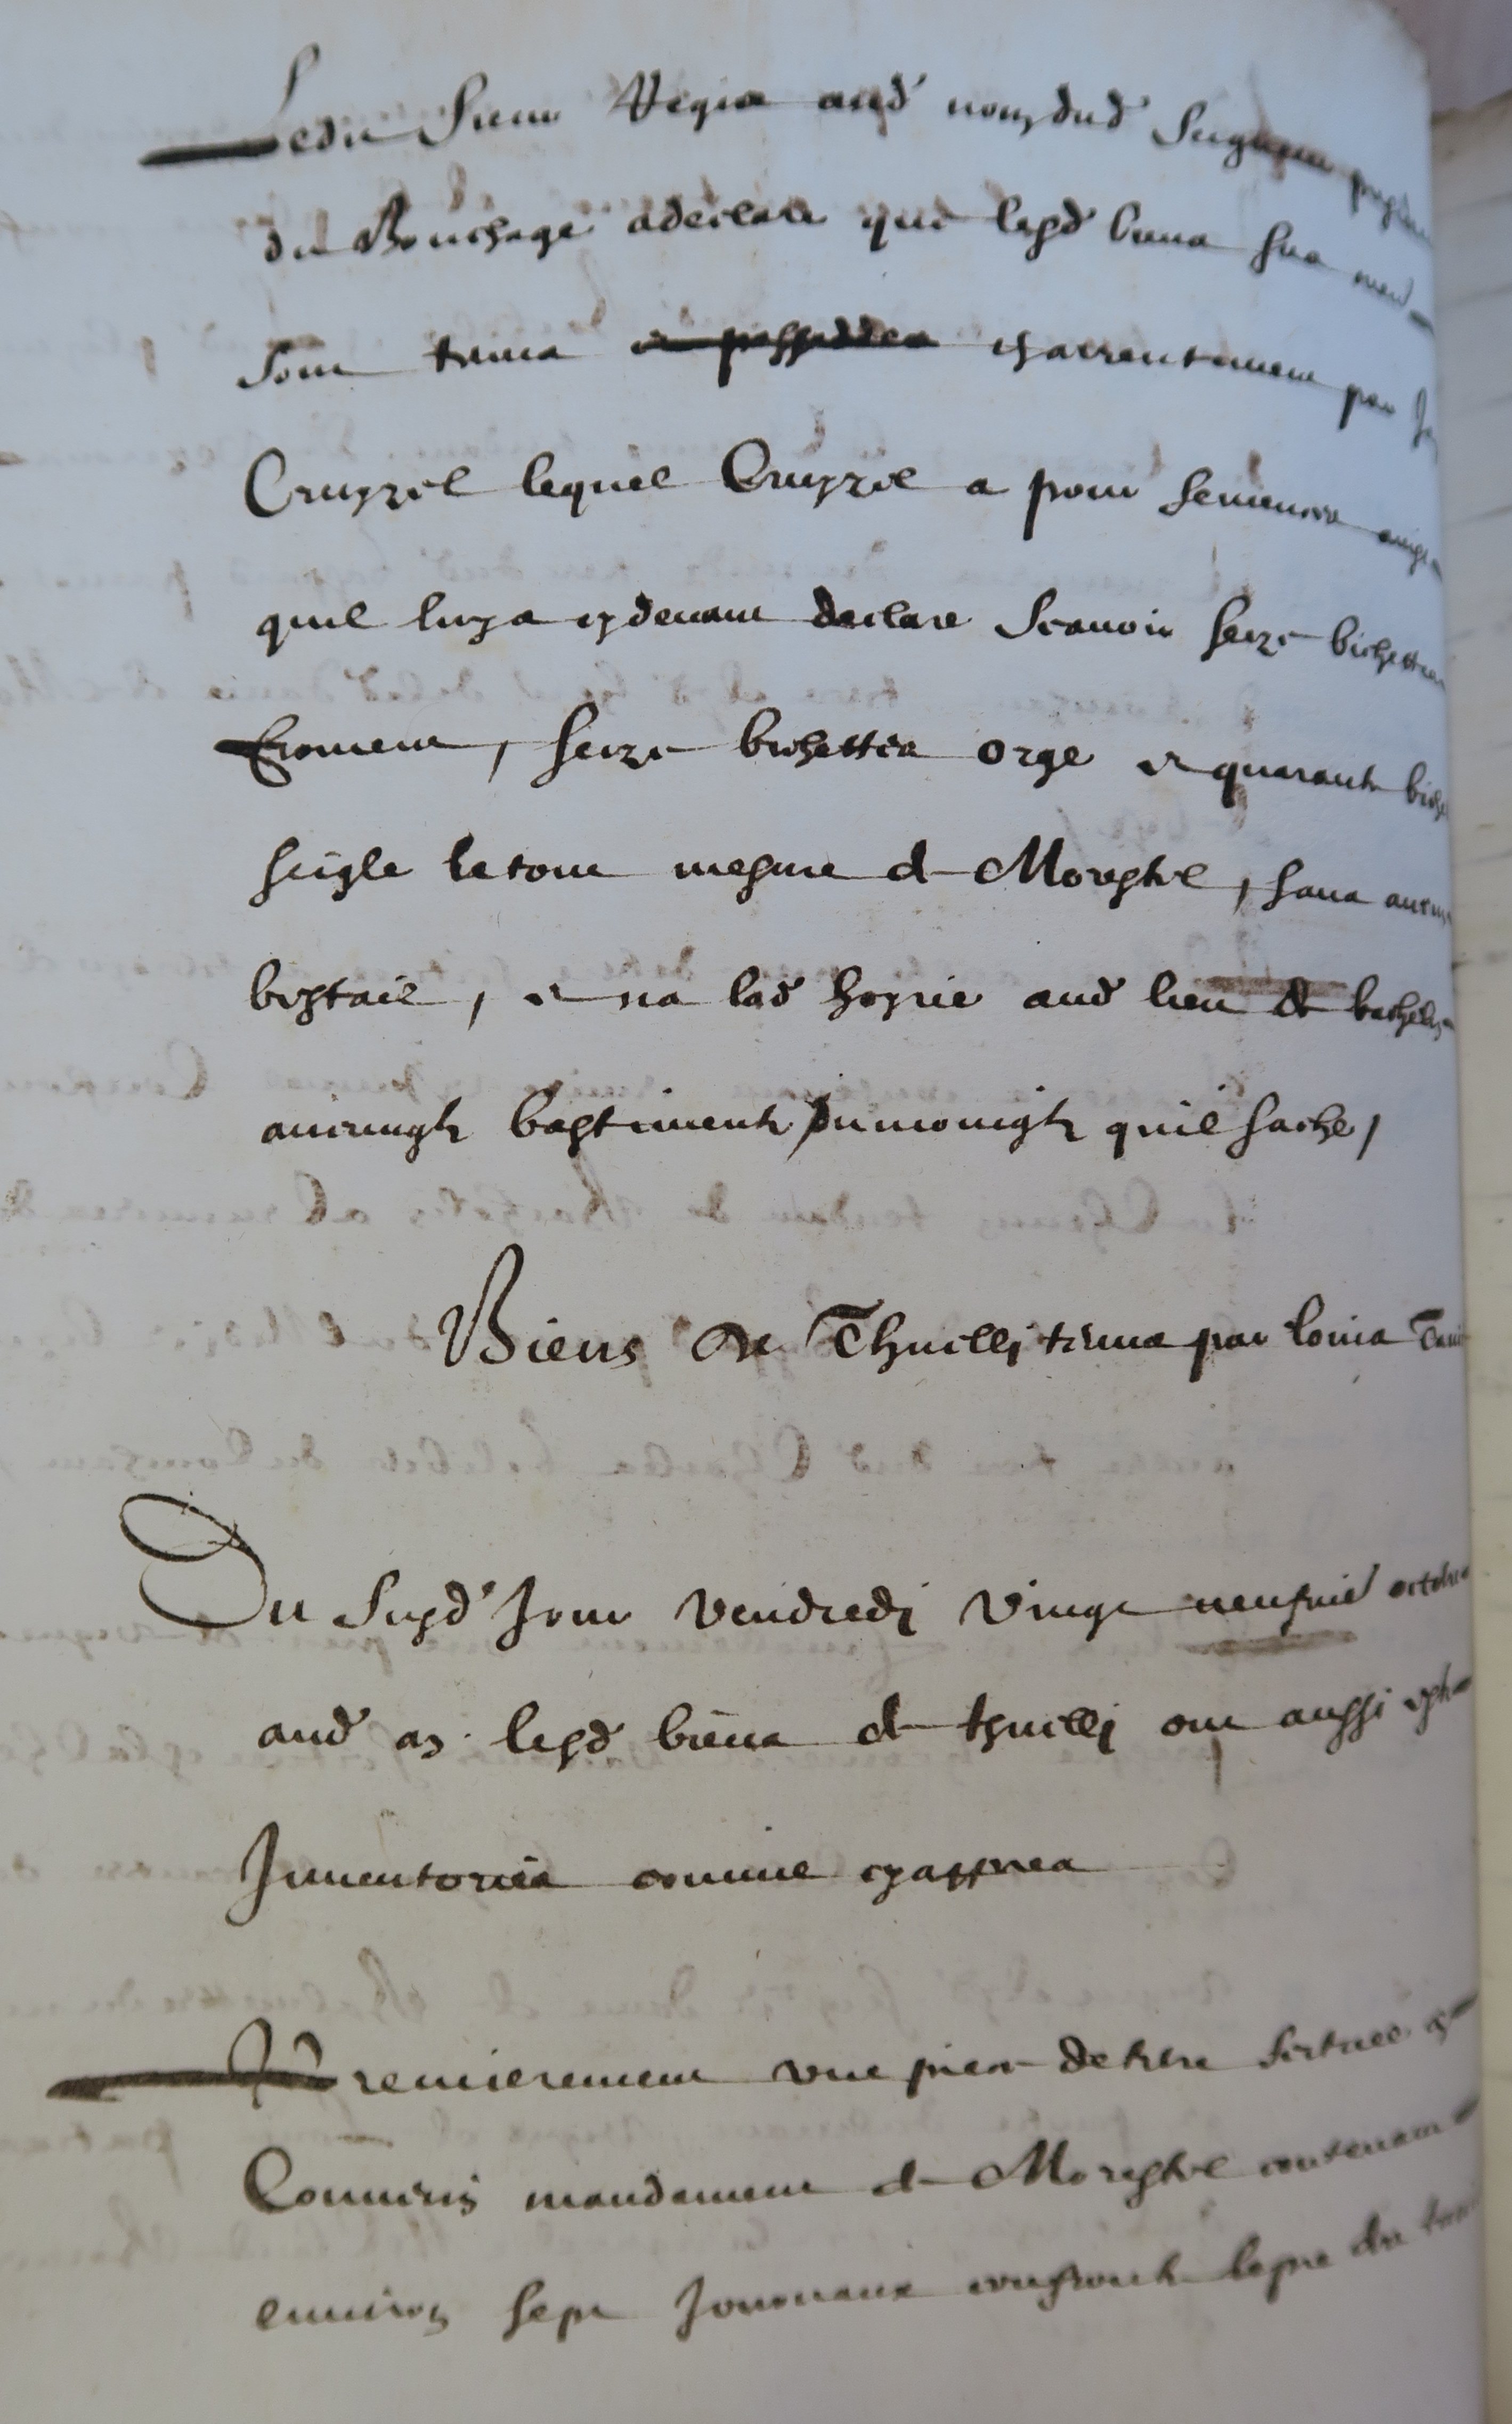 Ledit Sieur Regis aud nom dud Seigneur
du Bouchage a declare que lesd biens sus
sont tenus et possedes par
Cruyzel lequel Cruyzel a pour semences
quil luy a cydevant declare Scavoir seze bichettes
froment, seize bichettes orge et quarante
seigle le tout mesure de Morestel, sans aucun
bestail, et na lad hoyrie aud lieu de
aulcungz bastimentz quil sache,
Biens de Thuilli tenus par louis
Du susd Jour vendredi vingt neufvie octobre
aud an lesd biens de thuilli ont aussi este
Inventories comme cyappres
Premierement une piece de terre sictuee
mandement de Morestel contenant
environ sept Journaux confronte le pre du